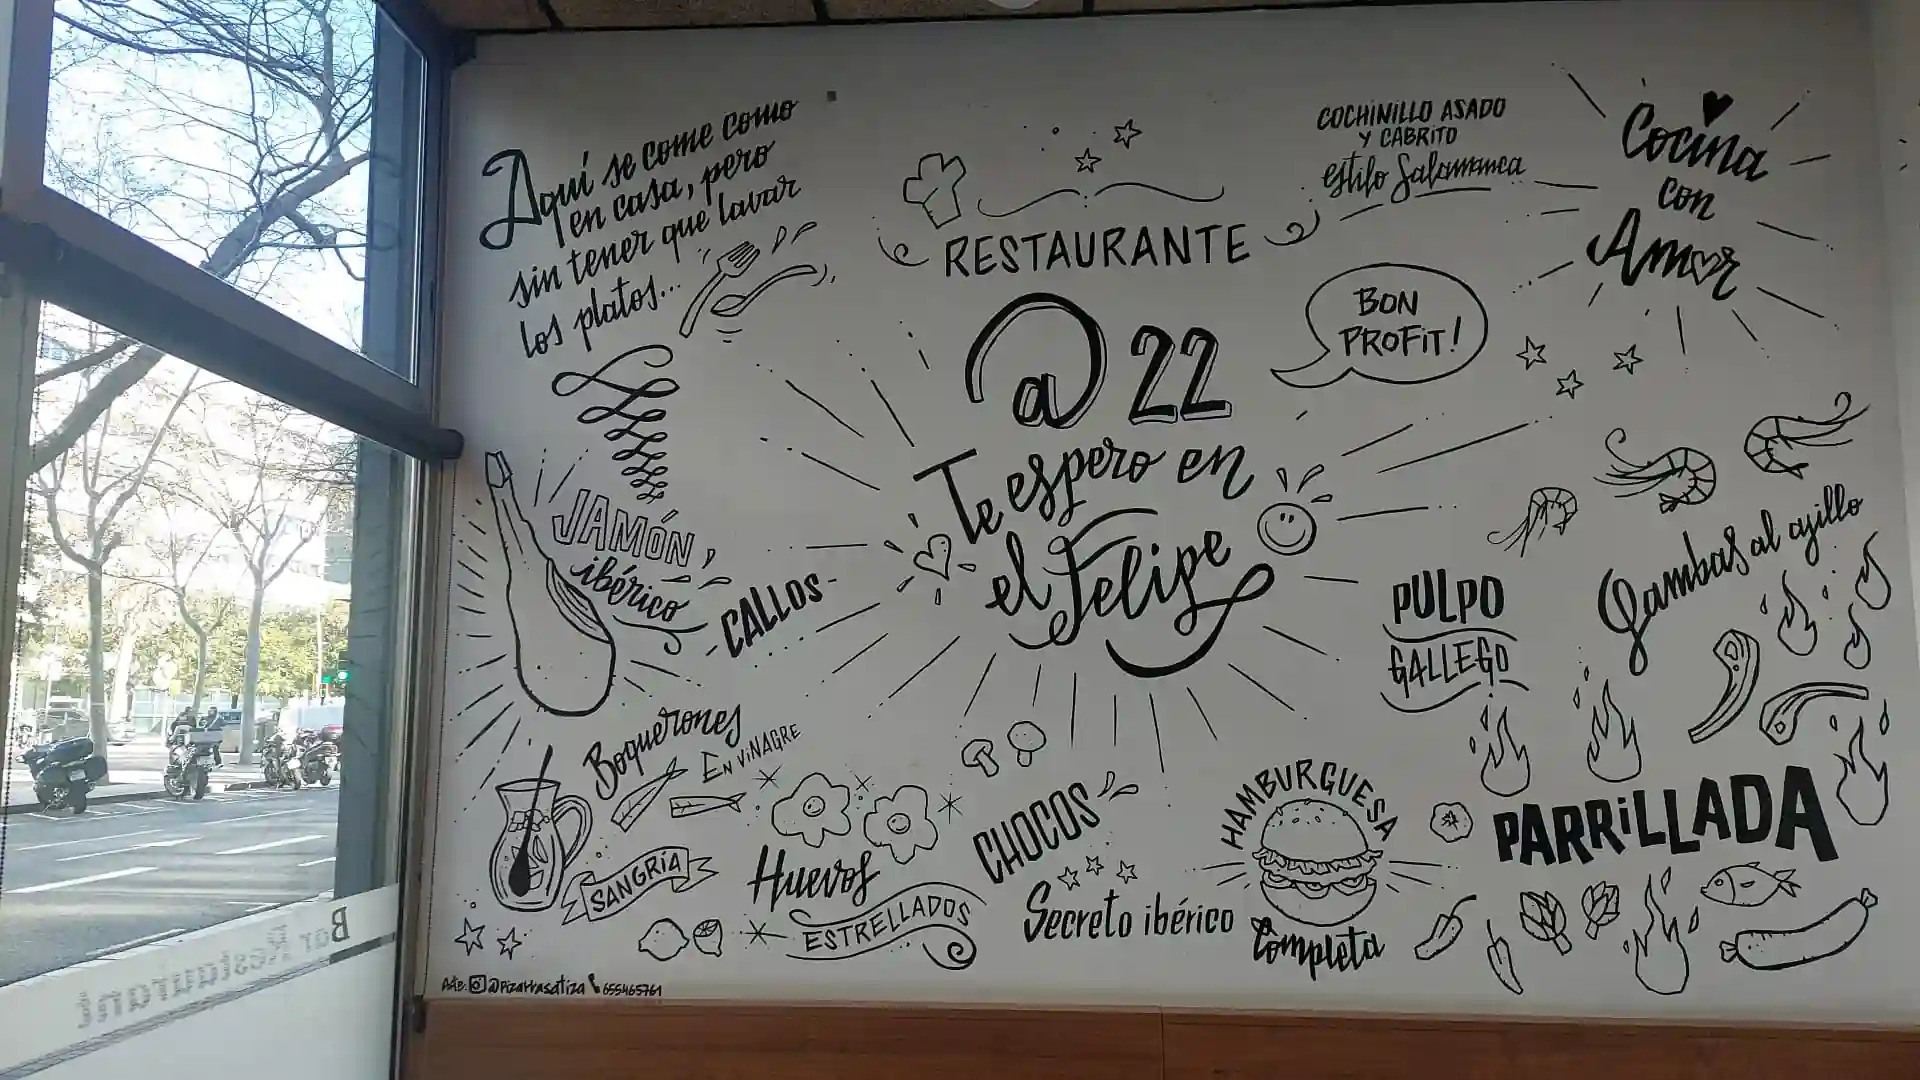 Aquí se come como
en casa, pero
sin tener que lavar
los platos...
RESTAURANTE
@ 22
Te espero en
el Felipe
COCHINILLO ASADO
Y CABRITO
estilo Salamanca
Cocina
con
Amor
BON
PROFIT!
JAMÓN
ibérico
CALLOS
PULPO
GALLEGO
Gambas al ajillo
Boquerones
EN VINAGRE
SANGRÍA
Huevos
ESTRELLADOS
CHOCOS
Secreto ibérico
HAMBURGUESA
Completa
PARRiLLADA
@Pizarrasatiza 655465761
Bar Restaurant